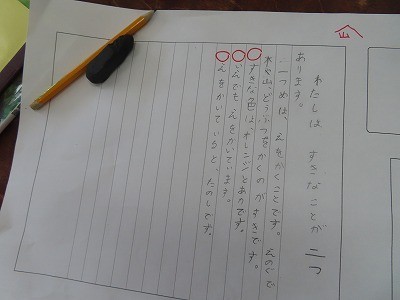 わたしは すきなことが 二つ
あります。
一つめは、えをかくことです。えのぐで
木や山、どうぶつをかくのがすきです。
すきな色は、オレンジとあかです。
いえでも、えをかいています。
えをかいていると、たのしです。